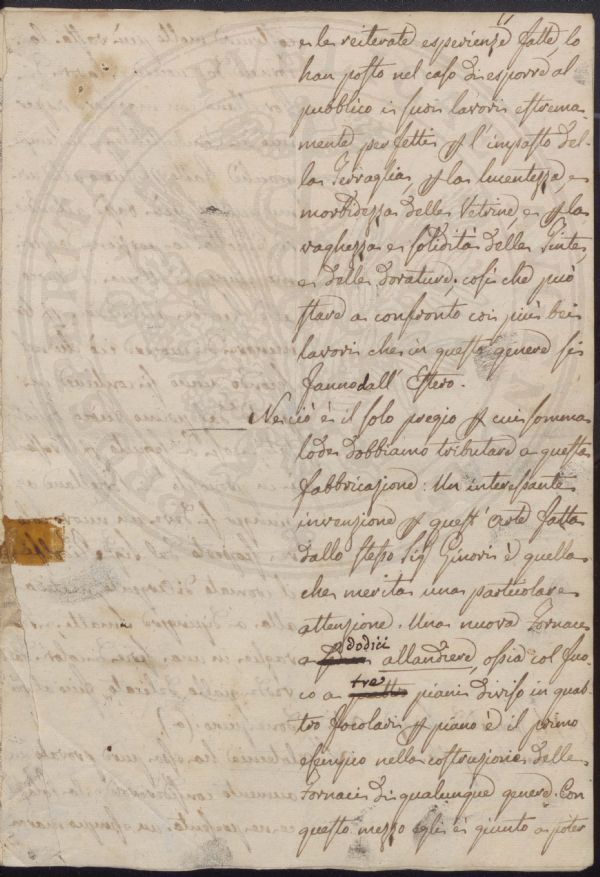 e le reiterate esperienze fatte lo
han posto nel caso di esporre al
pubblico i suoi lavori estrema-
mente perfetti p l'impasto del-
la Terraglia, p la lucentezza, e
morbidezza delle Vetrine, e p la
vaghezza e solidità delle Tinte,
e delle dorature, così che può
stare a confronto coi più bei
lavori che in questo genere si
fanno dall' Estero.
Ne ciò è il solo pregio p cui somma
lode dobbiamo tributare a questa
fabbricazione: Un interessante
invenzione p quest' Arte fatta
dallo stesso Sig Ginori è quella
che merita una particolare
attenzione. Una nuova Fornace
a dodici allandiere, ossia col fuo-
co a tre piani diviso in quat-
tro focolari p piano è il primo
esempio nella costruzione delle
Fornaci di qualunque genere. Con
questo mezzo egli è giunto a poter